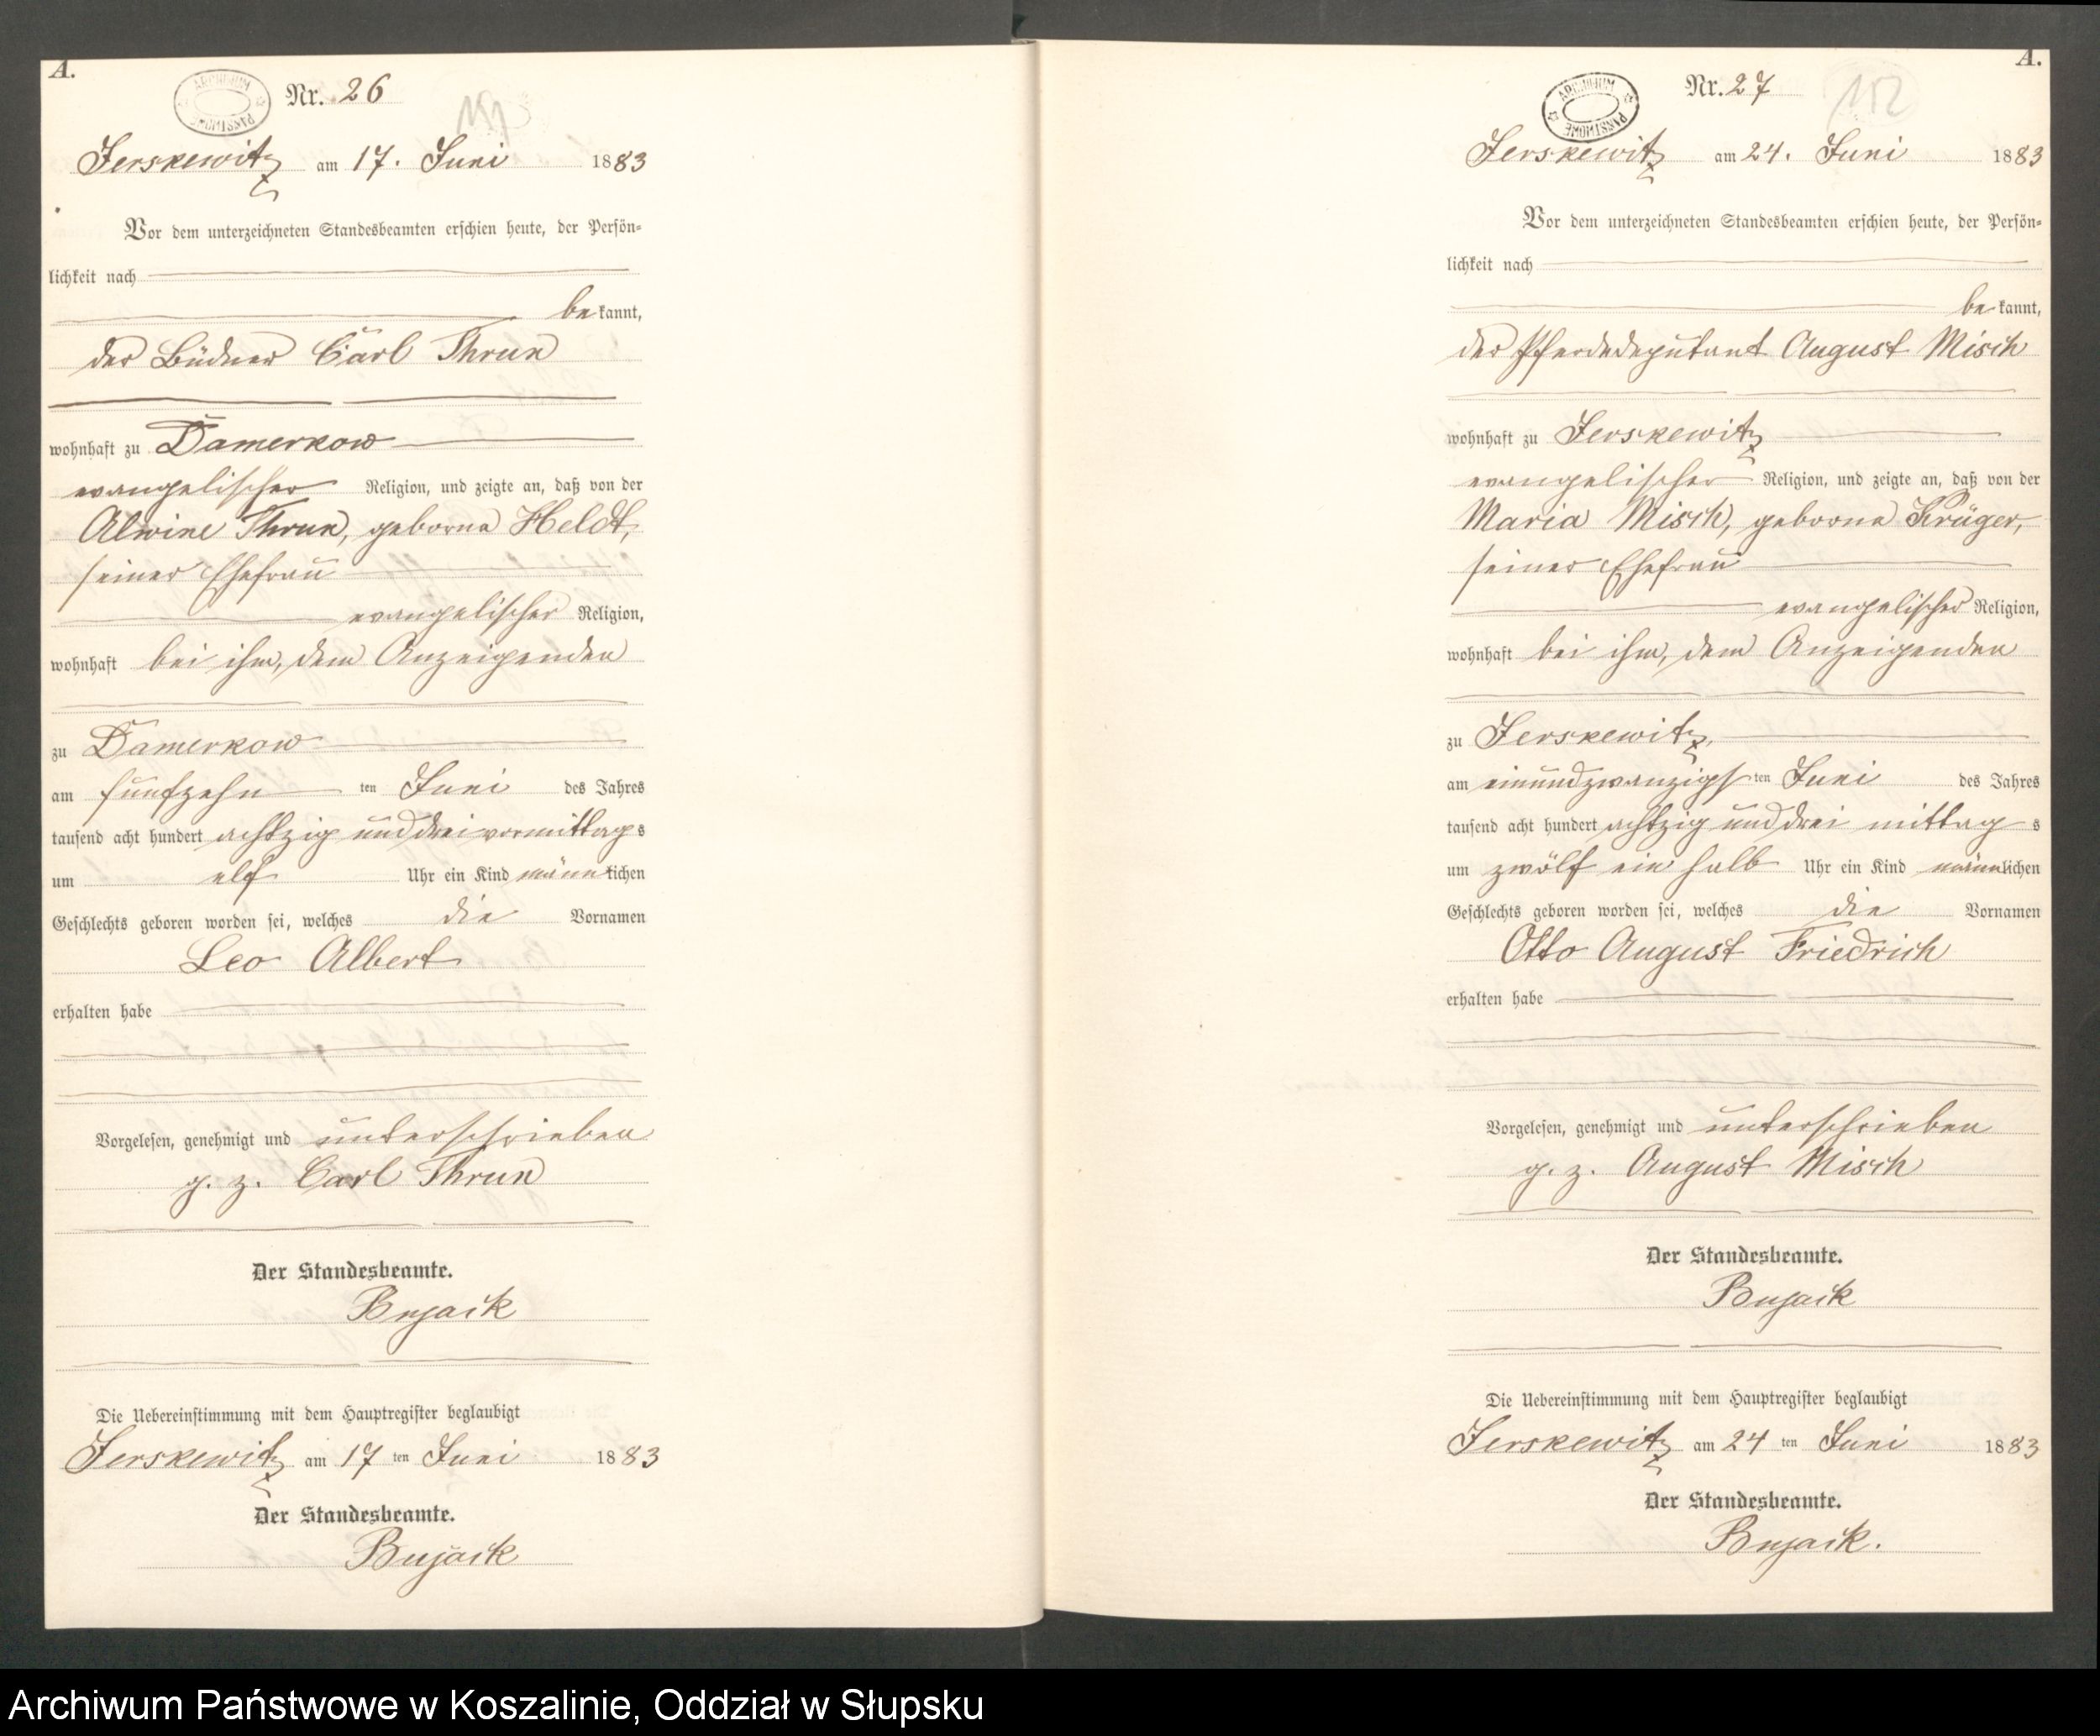 A.
ARCHIWUM PAŃSTWOWE
Nr. 26
151
Jerskewitz am 17. Juni 1883
Vor dem unterzeichneten Standesbeamten erschien heute, der Persön-
lichkeit nach
bekannt,
der Büdner Carl Thrun
wohnhaft zu Damerkow
evangelischer Religion, und zeigte an, daß von der
Alwine Thrun, geborne Heldt,
seiner Ehefrau
evangelischer Religion,
wohnhaft bei ihm, dem Anzeigenden
zu Damerkow
am fünfzehnten Juni des Jahres
tausend acht hundert achtzig und drei vormittags
um elf Uhr ein Kind männlichen
Geschlechts geboren worden sei, welches die Vornamen
Leo Albert
erhalten habe
Vorgelesen, genehmigt und unterschrieben
g. z. Carl Thrun
Der Standesbeamte.
Bujack
Die Uebereinstimmung mit dem Hauptregister beglaubigt
Jerskewitz am 17ten Juni 1883
Der Standesbeamte.
Bujack
A.
ARCHIWUM PAŃSTWOWE
Nr. 27
152
Jerskewitz am 24. Juni 1883
Vor dem unterzeichneten Standesbeamten erschien heute, der Persön-
lichkeit nach
bekannt,
der Pferdedeputant August Misch
wohnhaft zu Jerskewitz
evangelischer Religion, und zeigte an, daß von der
Maria Misch, geborne Krüger,
seiner Ehefrau
evangelischer Religion,
wohnhaft bei ihm, dem Anzeigenden
zu Jerskewitz,
am einundzwanzigsten Juni des Jahres
tausend acht hundert achtzig und drei mittags
um zwölf ein halb Uhr ein Kind männlichen
Geschlechts geboren worden sei, welches die Vornamen
Otto August Friedrich
erhalten habe
Vorgelesen, genehmigt und unterschrieben
g. z. August Misch
Der Standesbeamte.
Bujack
Die Uebereinstimmung mit dem Hauptregister beglaubigt
Jerskewitz am 24ten Juni 1883
Der Standesbeamte.
Bujack.
Archiwum Państwowe w Koszalinie, Oddział w Słupsku